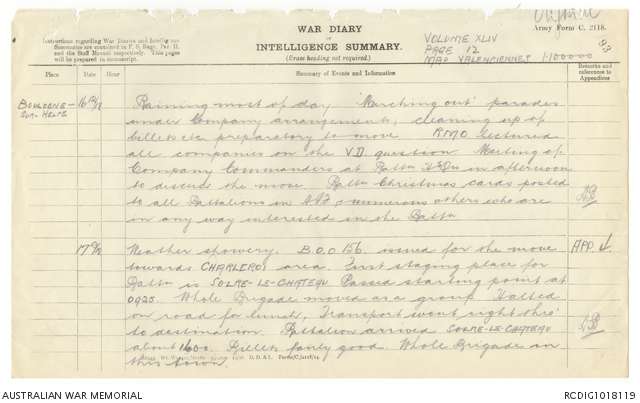 Original
WAR DIARY
INTELLIGENCE SUMMARY.
(Erase heading not required.)
Instructions regarding War Diaries and Intelligence
Summaries are contained in F. S. Regs., Part II.
and the Staff Manual respectively. Title pages
will be prepared in manuscript.
Army Form C. 2118.
VOLUME XLIV
PAGE 12
MAP VALENCIENNES 1-100000
Place Date Hour Summary of Events and Information Remarks and references to Appendices
BOULOGNE-SUR-HELPE 16 Raining most of day "Marching out" parades
under Company arrangements, cleaning up of
billets etc preparatory to move RMO lectured
all companies on the V.D. question Meeting of
Company Commanders at Battn H'Qrs in afternoon
to discuss the move Battn Christmas cards posted
to all Battalions in AIF & numerous others who are
in any way interested in the Battn
17 Weather showery. B.O.O 156 issued for the move APP. 4.
towards CHARLEROI area. First staging place for
Battn is SOLRE-LE-CHATEAU Passed starting point at
0925. Whole Brigade moved as a group Halted
on road for lunch, Transport went right thro'
to destination. Battalion arrived SOLRE-LE-CHATEAU
about 1600. Billets fairly good. Whole Brigade in
this town.
D. D. & L. Forms/C.2118/14.
AUSTRALIAN WAR MEMORIAL RCDIG1018119